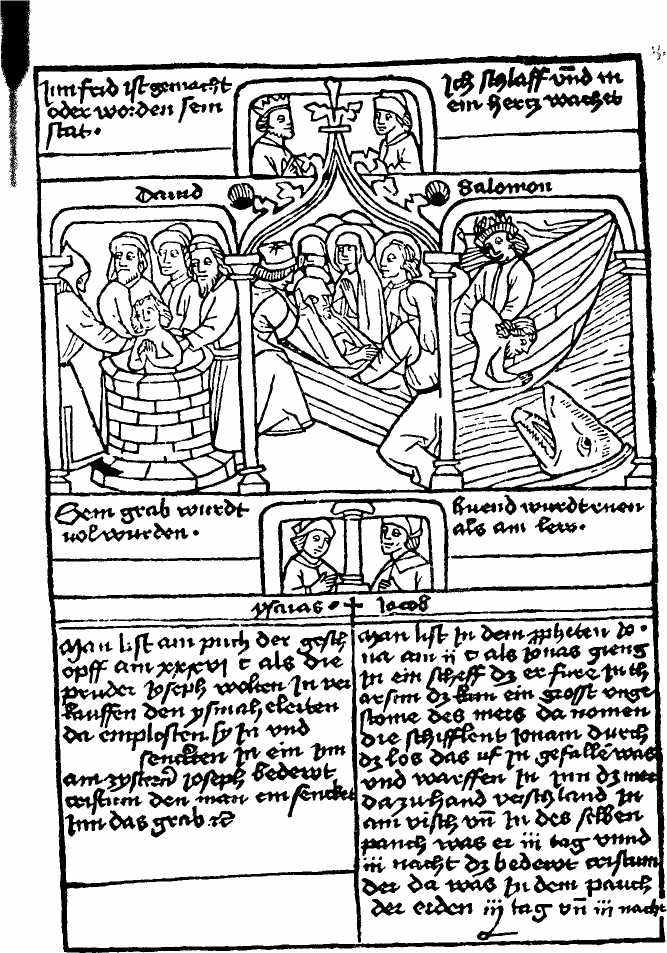 Im frid ist gemacht
oder worden sein
stat.
Ich schlaff vnd m
ein hertz wachet
Dauid
Salomon
Sein grab wurdt
vol wurden.
Ruend wurdt ruen
als am lew.
ysaias . Jacob
Man list am puch der gesch
opff am xxxvi c als die
pruder ioseph wolten In ver
kauffen den ysmaheleiten
da emplosten sy In vnd
sencten In ein Inn
am zystern Joseph bedewt
cristum den man ein sencket
Inn das grab
Man list In dem propheten Jo.
na am ii c als ionas gieng
In ein scheff dz er fure In th
arsim dz kam ein grosst vnge
stome des mers da nomen
die schifflent Jonam durch
dz los das uf In gefallen was
vnd warffen In Inn dz mer
da zu hand verschland In
am visch vn In des selben
pauch was er iii tag vnnd
iii nacht dz bedewt cristum
der da was In dem pauch
der erden iij tag vn iii nacht